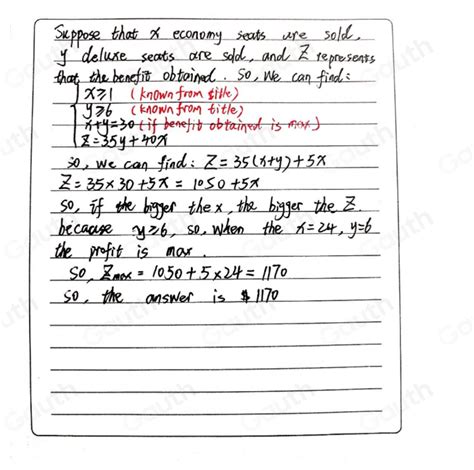 Suppose that x economy seats are sold,
y deluxe seats are sold, and Z represents
that the benefit obtained. So, We can find:
x≥1 (known from title)
y≥6 (known from title)
x+y=30 (if benefit obtained is max)
Z=35y+40x
so, we can find: Z=35(x+y)+5x
Z=35×30+5x=1050+5x
so, if the bigger the x, the bigger the Z.
because y≥6, so, when the x=24, y=6
the profit is max.
so, Zmax=1050+5×24=1170
so, the answer is $1170
Gauth